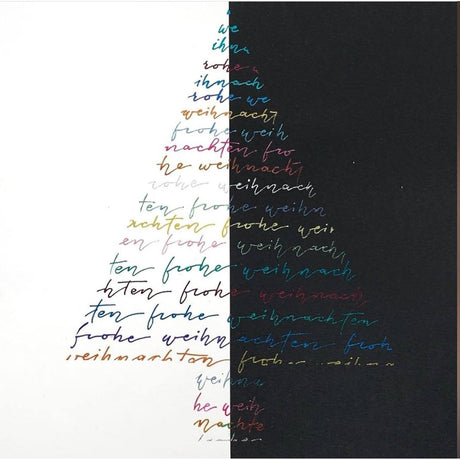 we
ihnu
rohe
ihnach
rohe we
weihnacht
frohe weih
nachten fro
he weihnacht
rohe weihnach
ten frohe weihn
achten frohe wei
en frohe weih nach
ten frohe weihnach
hten frohe weihnach
ten frohe weihnachten
frohe weihnachten froh
weihnachten froh
weihnu
he weih
nachte